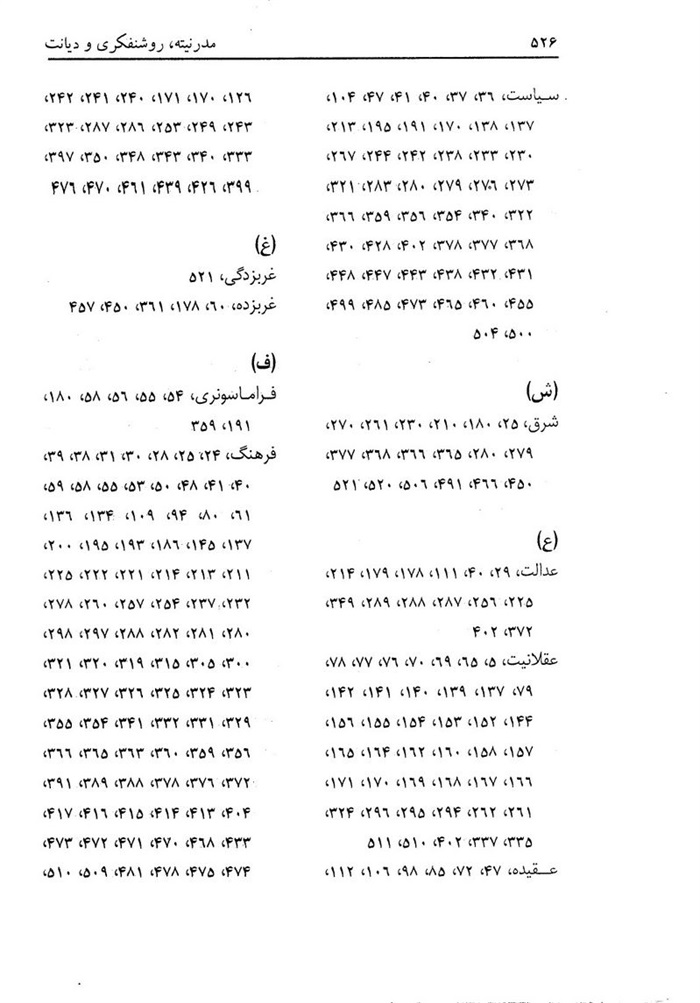 ۵۲۶ مدرنیته، روشنفکری و دیانت
سیاست، ۳۶، ۳۷، ۴۰، ۴۱، ۴۷، ۱۰۴،
۱۳۷، ۱۳۸، ۱۷۰، ۱۹۱، ۱۹۵، ۲۱۳،
۲۳۰، ۲۳۳، ۲۳۸، ۲۴۲، ۲۴۴، ۲۶۷،
۲۷۳، ۲۷۶، ۲۷۹، ۲۸۰، ۲۸۳، ۳۲۱،
۳۲۲، ۳۴۰، ۳۵۴، ۳۵۶، ۳۵۹، ۳۶۶،
۳۶۸، ۳۷۷، ۳۷۸، ۴۰۲، ۴۲۸، ۴۳۰،
۴۳۱، ۴۳۲، ۴۳۸، ۴۴۳، ۴۴۷، ۴۴۸،
۴۵۵، ۴۶۰، ۴۶۵، ۴۷۳، ۴۸۵، ۴۹۹،
۵۰۰، ۵۰۴
(ش)
شرق، ۲۵، ۱۸۰، ۲۱۰، ۲۳۰، ۲۶۱، ۲۷۰،
۲۷۹، ۲۸۰، ۳۶۵، ۳۶۶، ۳۶۸، ۳۷۷،
۴۵۰، ۴۶۶، ۴۹۱، ۵۰۶، ۵۲۰، ۵۲۱
(ع)
عدالت، ۲۹، ۴۰، ۱۱۱، ۱۷۸، ۱۷۹، ۲۱۴،
۲۲۵، ۲۵۶، ۲۸۷، ۲۸۸، ۲۸۹، ۳۴۹،
۳۷۲، ۴۰۲
عقلانیت، ۵، ۶۵، ۶۹، ۷۰، ۷۶، ۷۷، ۷۸،
۷۹، ۱۳۷، ۱۳۹، ۱۴۰، ۱۴۱، ۱۴۲،
۱۴۴، ۱۵۲، ۱۵۳، ۱۵۴، ۱۵۵، ۱۵۶،
۱۵۷، ۱۵۸، ۱۶۰، ۱۶۲، ۱۶۴، ۱۶۵،
۱۶۶، ۱۶۷، ۱۶۸، ۱۶۹، ۱۷۰، ۱۷۱،
۲۶۱، ۲۶۲، ۲۹۴، ۲۹۵، ۲۹۶، ۳۲۴،
۳۳۵، ۳۳۷، ۴۰۲، ۵۱۰، ۵۱۱
عقیده، ۴۷، ۷۲، ۸۵، ۹۸، ۱۰۶، ۱۱۲،
۱۲۶، ۱۷۰، ۱۷۱، ۲۴۰، ۲۴۱، ۲۴۲،
۲۴۳، ۲۴۹، ۲۵۳، ۲۸۶، ۲۸۷، ۳۲۳،
۳۳۳، ۳۴۰، ۳۴۳، ۳۴۸، ۳۵۰، ۳۹۷،
۳۹۹، ۴۲۶، ۴۳۹، ۴۶۱، ۴۷۰، ۴۷۶
(غ)
غربزدگی، ۵۲۱
غربزده، ۶۰، ۱۷۸، ۳۶۱، ۴۵۰، ۴۵۷
(ف)
فراماسونری، ۵۴، ۵۵، ۵۶، ۵۸، ۱۸۰،
۱۹۱، ۳۵۹
فرهنگ، ۲۴، ۲۵، ۲۸، ۳۰، ۳۱، ۳۸، ۳۹،
۴۰، ۴۱، ۴۸، ۵۰، ۵۳، ۵۵، ۵۸، ۵۹،
۶۱، ۸۰، ۹۴، ۱۰۹، ۱۳۴، ۱۳۶،
۱۳۷، ۱۴۵، ۱۸۶، ۱۹۳، ۱۹۵، ۲۰۰،
۲۱۱، ۲۱۳، ۲۱۴، ۲۲۱، ۲۲۲، ۲۲۵،
۲۳۲، ۲۳۷، ۲۵۴، ۲۵۷، ۲۶۰، ۲۷۸،
۲۸۰، ۲۸۱، ۲۸۲، ۲۸۸، ۲۹۷، ۲۹۸،
۳۰۰، ۳۰۵، ۳۱۵، ۳۱۹، ۳۲۰، ۳۲۱،
۳۲۳، ۳۲۴، ۳۲۵، ۳۲۶، ۳۲۷، ۳۲۸،
۳۲۹، ۳۳۱، ۳۳۲، ۳۴۱، ۳۵۴، ۳۵۵،
۳۵۶، ۳۵۹، ۳۶۰، ۳۶۳، ۳۶۵، ۳۶۶،
۳۷۲، ۳۷۶، ۳۷۸، ۳۸۸، ۳۸۹، ۳۹۱،
۴۰۴، ۴۱۳، ۴۱۴، ۴۱۵، ۴۱۶، ۴۱۷،
۴۳۳، ۴۶۸، ۴۷۰، ۴۷۱، ۴۷۲، ۴۷۳،
۴۷۴، ۴۷۵، ۴۷۸، ۴۸۱، ۵۰۹، ۵۱۰،